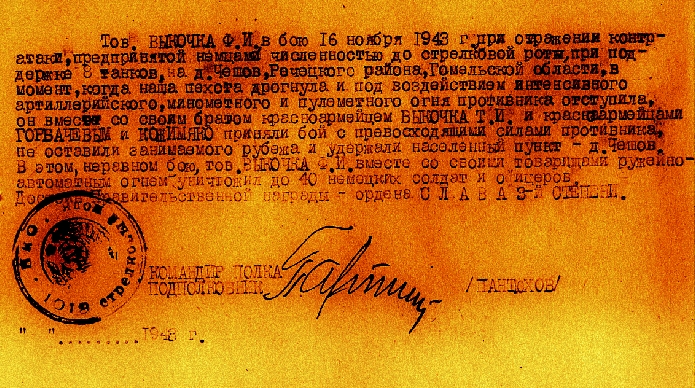 Тов. ВЫКОЧКА Ф.И. в бою 16 ноября 1943 г. при отражении контр-
атаки, предпринятой немцами численностью до стрелковой роты, при под-
держке 8 танков, на д. Чешов, Речецкого района, Гомельской области, в
момент, когда наша пехота дрогнула и под воздействием интенсивного
артиллерийского, минометного и пулеметного огня противника отступила,
он вместе со своим братом красноармейцем ВЫКОЧКА Т.И. и красноармейцами
ГОРБАЧЕВЫМ и КОЖИМЯКО приняли бой с превосходящими силами противника,
не оставили занимаемого рубежа и удержали населенный пункт - д. Чешов.
В этом, неравном бою, тов. ВЫКОЧКА Ф.И. вместе со своими товарищами ружейно-
автоматным огнем уничтожил до 40 немецких солдат и офицеров.
Достоин правительственной награды - ордена С Л А В А 3-й СТЕПЕНИ.
НКО 1018 стрелковый полк
КОМАНДИР ПОЛКА
ПОДПОЛКОВНИК /ПАНТЮХОВ/
" "..........1943 г.